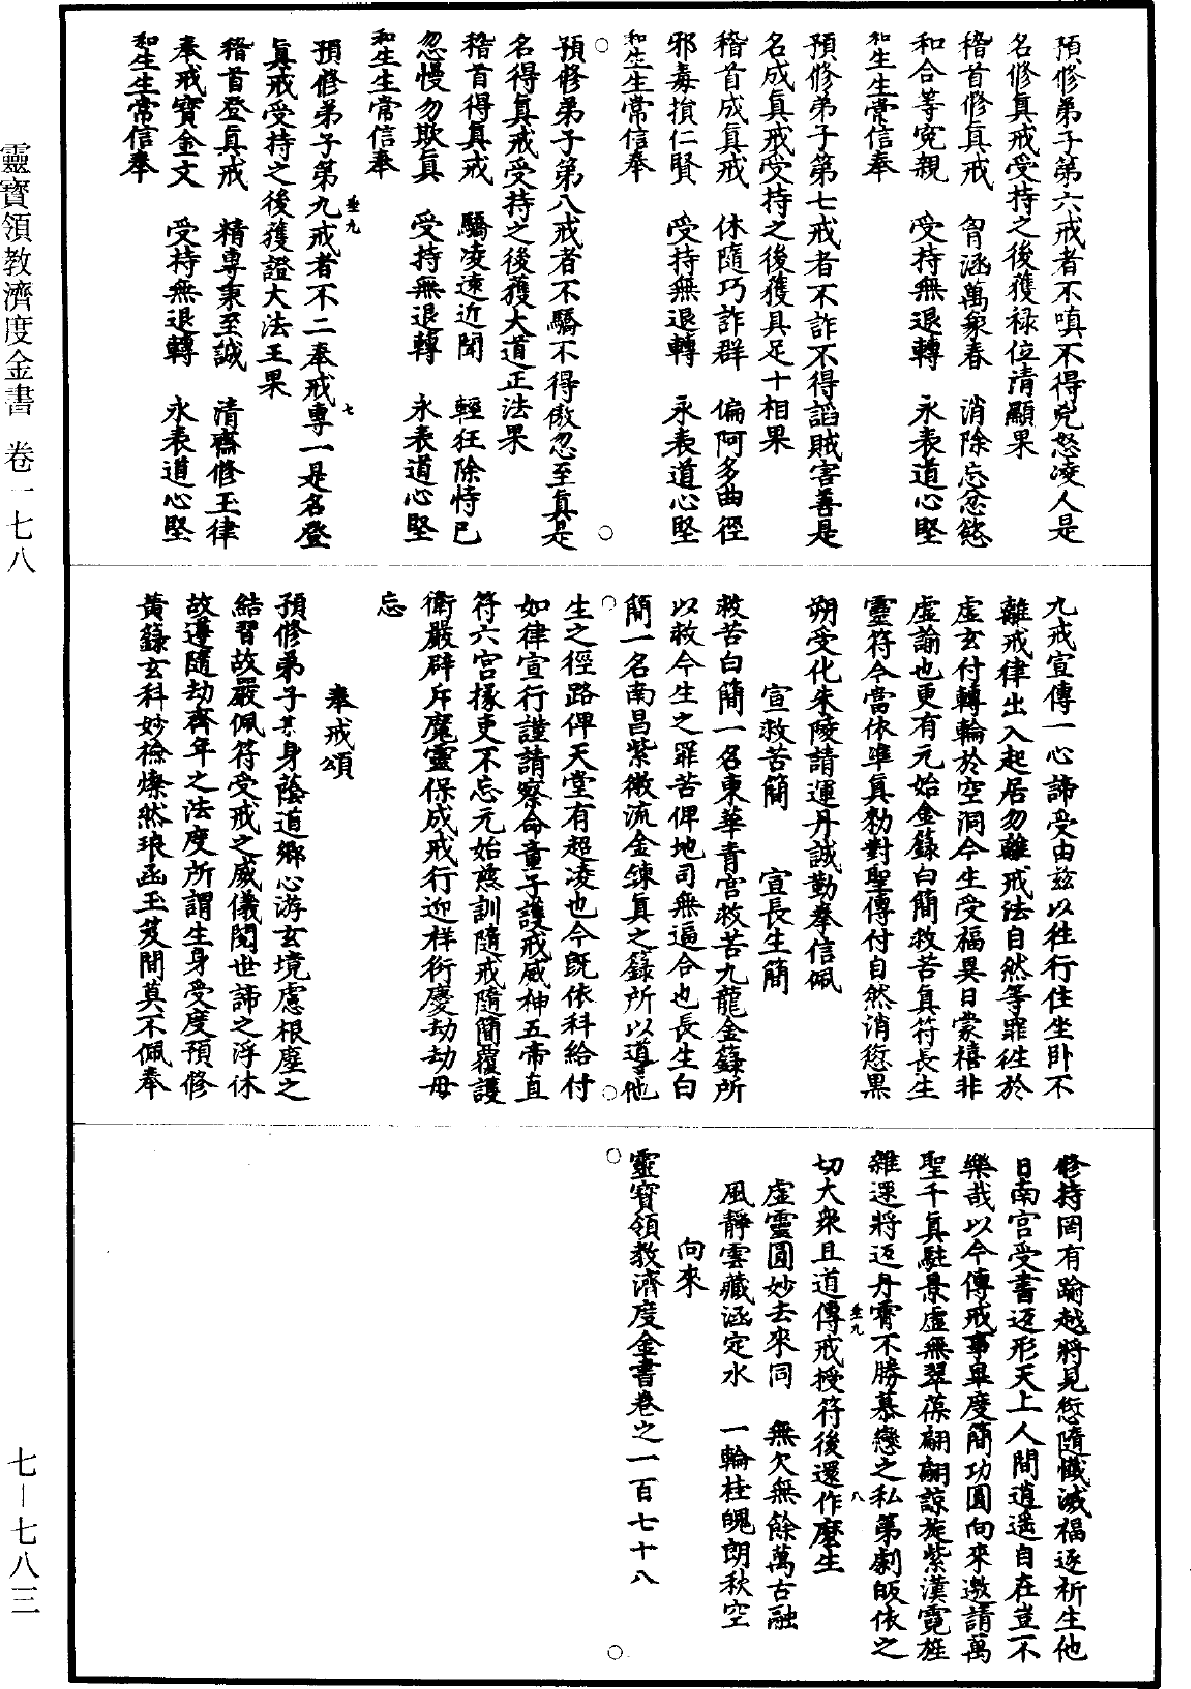 預修弟子第六戒者不嗔不得兇怒凌人是
名修真戒受持之後獲祿位清顯果
稽首修真戒　胷涵萬象春　消除忘忿慾
和合等冤親　受持無退轉　永表道心堅
和生生常信奉
預修弟子第七戒者不詐不得謟賊害善是
名成真戒受持之後獲具足十相果
稽首成真戒　休隨巧詐群　偏阿多曲徑
邪毒損仁賢　受持無退轉　永表道心堅
和生生常信奉
預修弟子第八戒者不驕不得傲忽至真是
名得真戒受持之後獲大道正法果
稽首得真戒　驕凌遠近聞　輕狂除恃己
忽慢勿欺真　受持無退轉　永表道心堅
和生生常信奉
預修弟子第九戒者不二奉戒專一是名登
真戒受持之後獲證大法王果
稽首登真戒　精專秉至誠　清齋修玉律
奉戒寶金文　受持無退轉　永表道心堅
和生生常信奉
九戒宣傳一心諦受由兹以往行住坐卧不
離戒律出入起居勿離戒法自然等罪往於
虛玄付轉輪於空洞今生受福異日蒙禧非
虛諭也更有元始金籙白簡救苦真符長生
靈符今當依準真勑對聖傳付自然消愆果
朔受化朱陵請運丹誠勤奉信佩
宣救苦簡　宣長生簡
救苦白簡一名東華青宮救苦九龍金籙所
以救今生之罪苦俾地司無逼合也長生白
簡一名南昌紫微流金鍊真之籙所以導他
生之徑路俾天堂有超凌也今旣依科給付
如律宣行謹請察命童子護戒威神五帝直
符六宮掾吏不忘元始慈訓隨戒隨簡覆護
衛嚴辟斥魔靈保成戒行迎祥衍慶劫劫毋
忘
奉戒頌
預修弟子某身蔭道鄉心游玄境慮根塵之
結習故嚴佩符受戒之威儀閱世諦之浮休
故遵隨劫齊年之法度所謂生身受度預修
黃籙玄科妙捡燦然琅函玉笈間莫不佩奉
修持罔有踰越將見愆隨懺滅福逐祈生他
日南宮受書返形天上人間逍遥自在豈不
樂哉以今傳戒事畢度簡功圓向來邀請萬
聖千真駐景虛無翠葆翩翩諒旋紫漢霓旌
雜遝將返丹霄不勝慕戀之私第劇皈依之
切大衆且道傳戒授符後還作麼生
虛靈圓妙去來同　無欠無餘萬古融
風靜雲藏涵定水　一輪桂魄朗秋空
向來
靈寶領教濟度金書卷之一百七十八
垂九
七
垂九
八
靈寶領教濟度金書　卷一七八
七—七八三